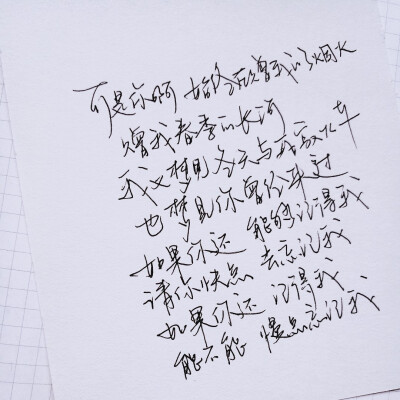 可是你啊 始终 赠我以烟火
赠我春季的长河
我又梦见冬天与
也梦见你曾经来过
如果你还 能够记得我
请你快点 去忘记我
如果你还 记得我
能不能 慢点忘记我